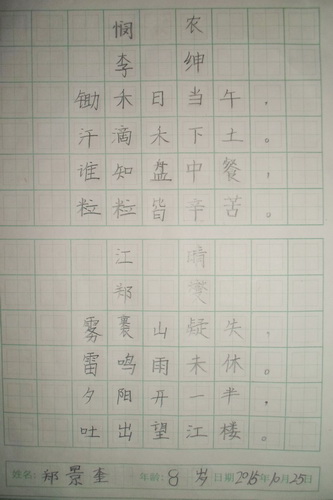 悯农
李绅
锄禾日当午，
汗滴木下土。
谁知盘中餐，
粒粒皆辛苦。
江晴
郑燮
雾裹山疑失，
雷鸣雨未休。
夕阳开一半，
吐出望江楼。
姓名：郑景奎 年龄：8 岁 日期 2015年10月25日